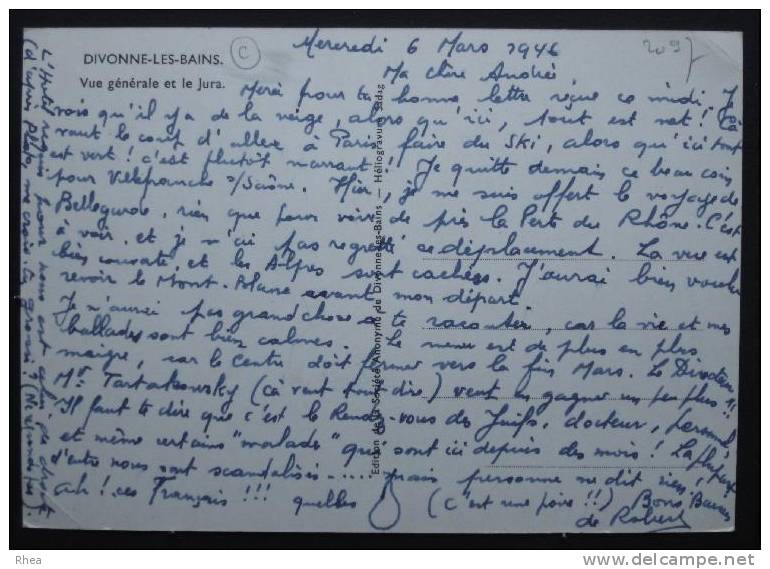 DIVONNE-LES-BAINS.
Vue générale et le Jura.
C
2097
Mercredi 6 Mars 1946
Ma chère Andrée
Merci pour ta bonne lettre reçue ce midi. Je
vois qu'il y a de la neige, alors qu'ici, tout est net! Çà
vaut le coup d'aller à Paris faire du Ski, alors qu'ici tout
est vert! c'est plutôt marrant! Je quitte demain ce beau coin
pour Villefranche s/Saône. Hier, je me suis offert le voyage de
Bellegarde, rien que pour voir de près la Perte du Rhône. C'est
à voir, et je n'ai pas regretté ce déplacement. La vue est
bien couverte et les Alpes sont cachées. J'aurai bien voulu
revoir le Mont-Blanc avant mon départ.
Je n'aurai pas grand chose à te raconter, car la vie et mes
ballades sont bien calmes. Le menu est de plus en plus
maigre, car le Centre doit fermer vers la fin Mars. Le Directeur
Mr Tartakowsky (çà veut tout dire) veut en gagner un peu plus!!
Il faut te dire que c'est le Rendez-vous des Juifs, docteur, personnel
et même certains "malades" qui sont ici depuis des mois! La plupart
d'entre nous sont scandalisés..... mais personne ne dit rien,
ah! ces Français!!! quelles (c'est une poire!!) Bons Baisers
de Robert
L'Hôtel pour nous est celui de droite
(d'après photo, me crois-tu grossi? (Ne réponds pas)
Edition de la Société Anonyme de Divonne-les-Bains — Héliogravure Sadag
Rhea
delcampe.net